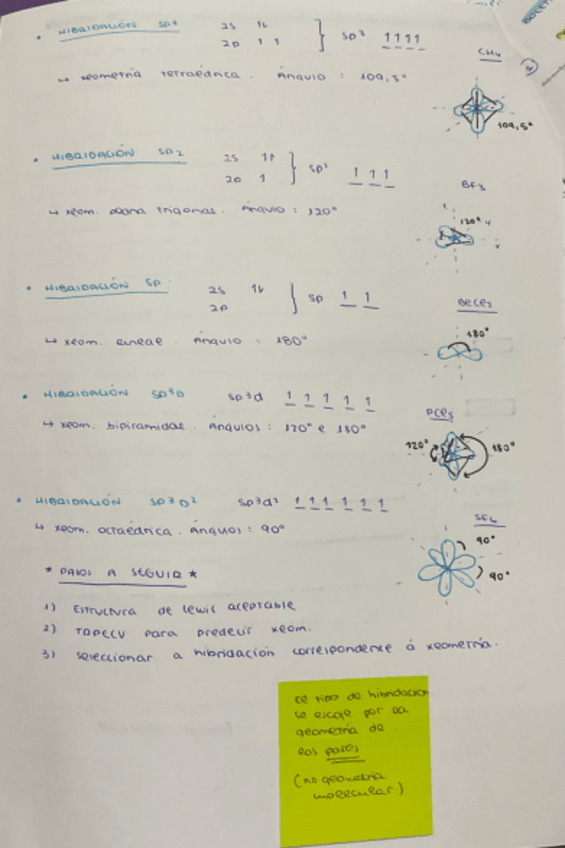 • HIBRIDACIÓN SP³ 2s 1↓ 2p 1 1 } sp³ 1 1 1 1
CH₄
↳ xeometría tetraédrica. Ángulo: 109,5°
109,5°
• HIBRIDACIÓN SP2 2s 1↓ 2p 1 } sp² 1 1 1
BF3
↳ xeom. plana trigonal. Ángulo: 120°
120°
• HIBRIDACIÓN SP: 2s 1↓ 2p } sp 1 1
BeCl2
↳ xeom. lineal. Ángulo: 180°
180°
• HIBRIDACIÓN SP³D sp³d 1 1 1 1 1
PCl5
↳ xeom. bipiramidal. Ángulos: 120° e 180°
120° 180°
• HIBRIDACIÓN SP³D² sp³d² 1 1 1 1 1 1
SF6
↳ xeom. octaédrica. Ángulos: 90°
90°
90°
* PASOS A SEGUIR *
1) Estructura de Lewis aceptable
2) TRPECV para predecir xeom.
3) Seleccionar a hibridación correspondente á xeometría.
El tipo de hibridación
se escoje por la
geometría de
los pares
(no geometría
molecular)